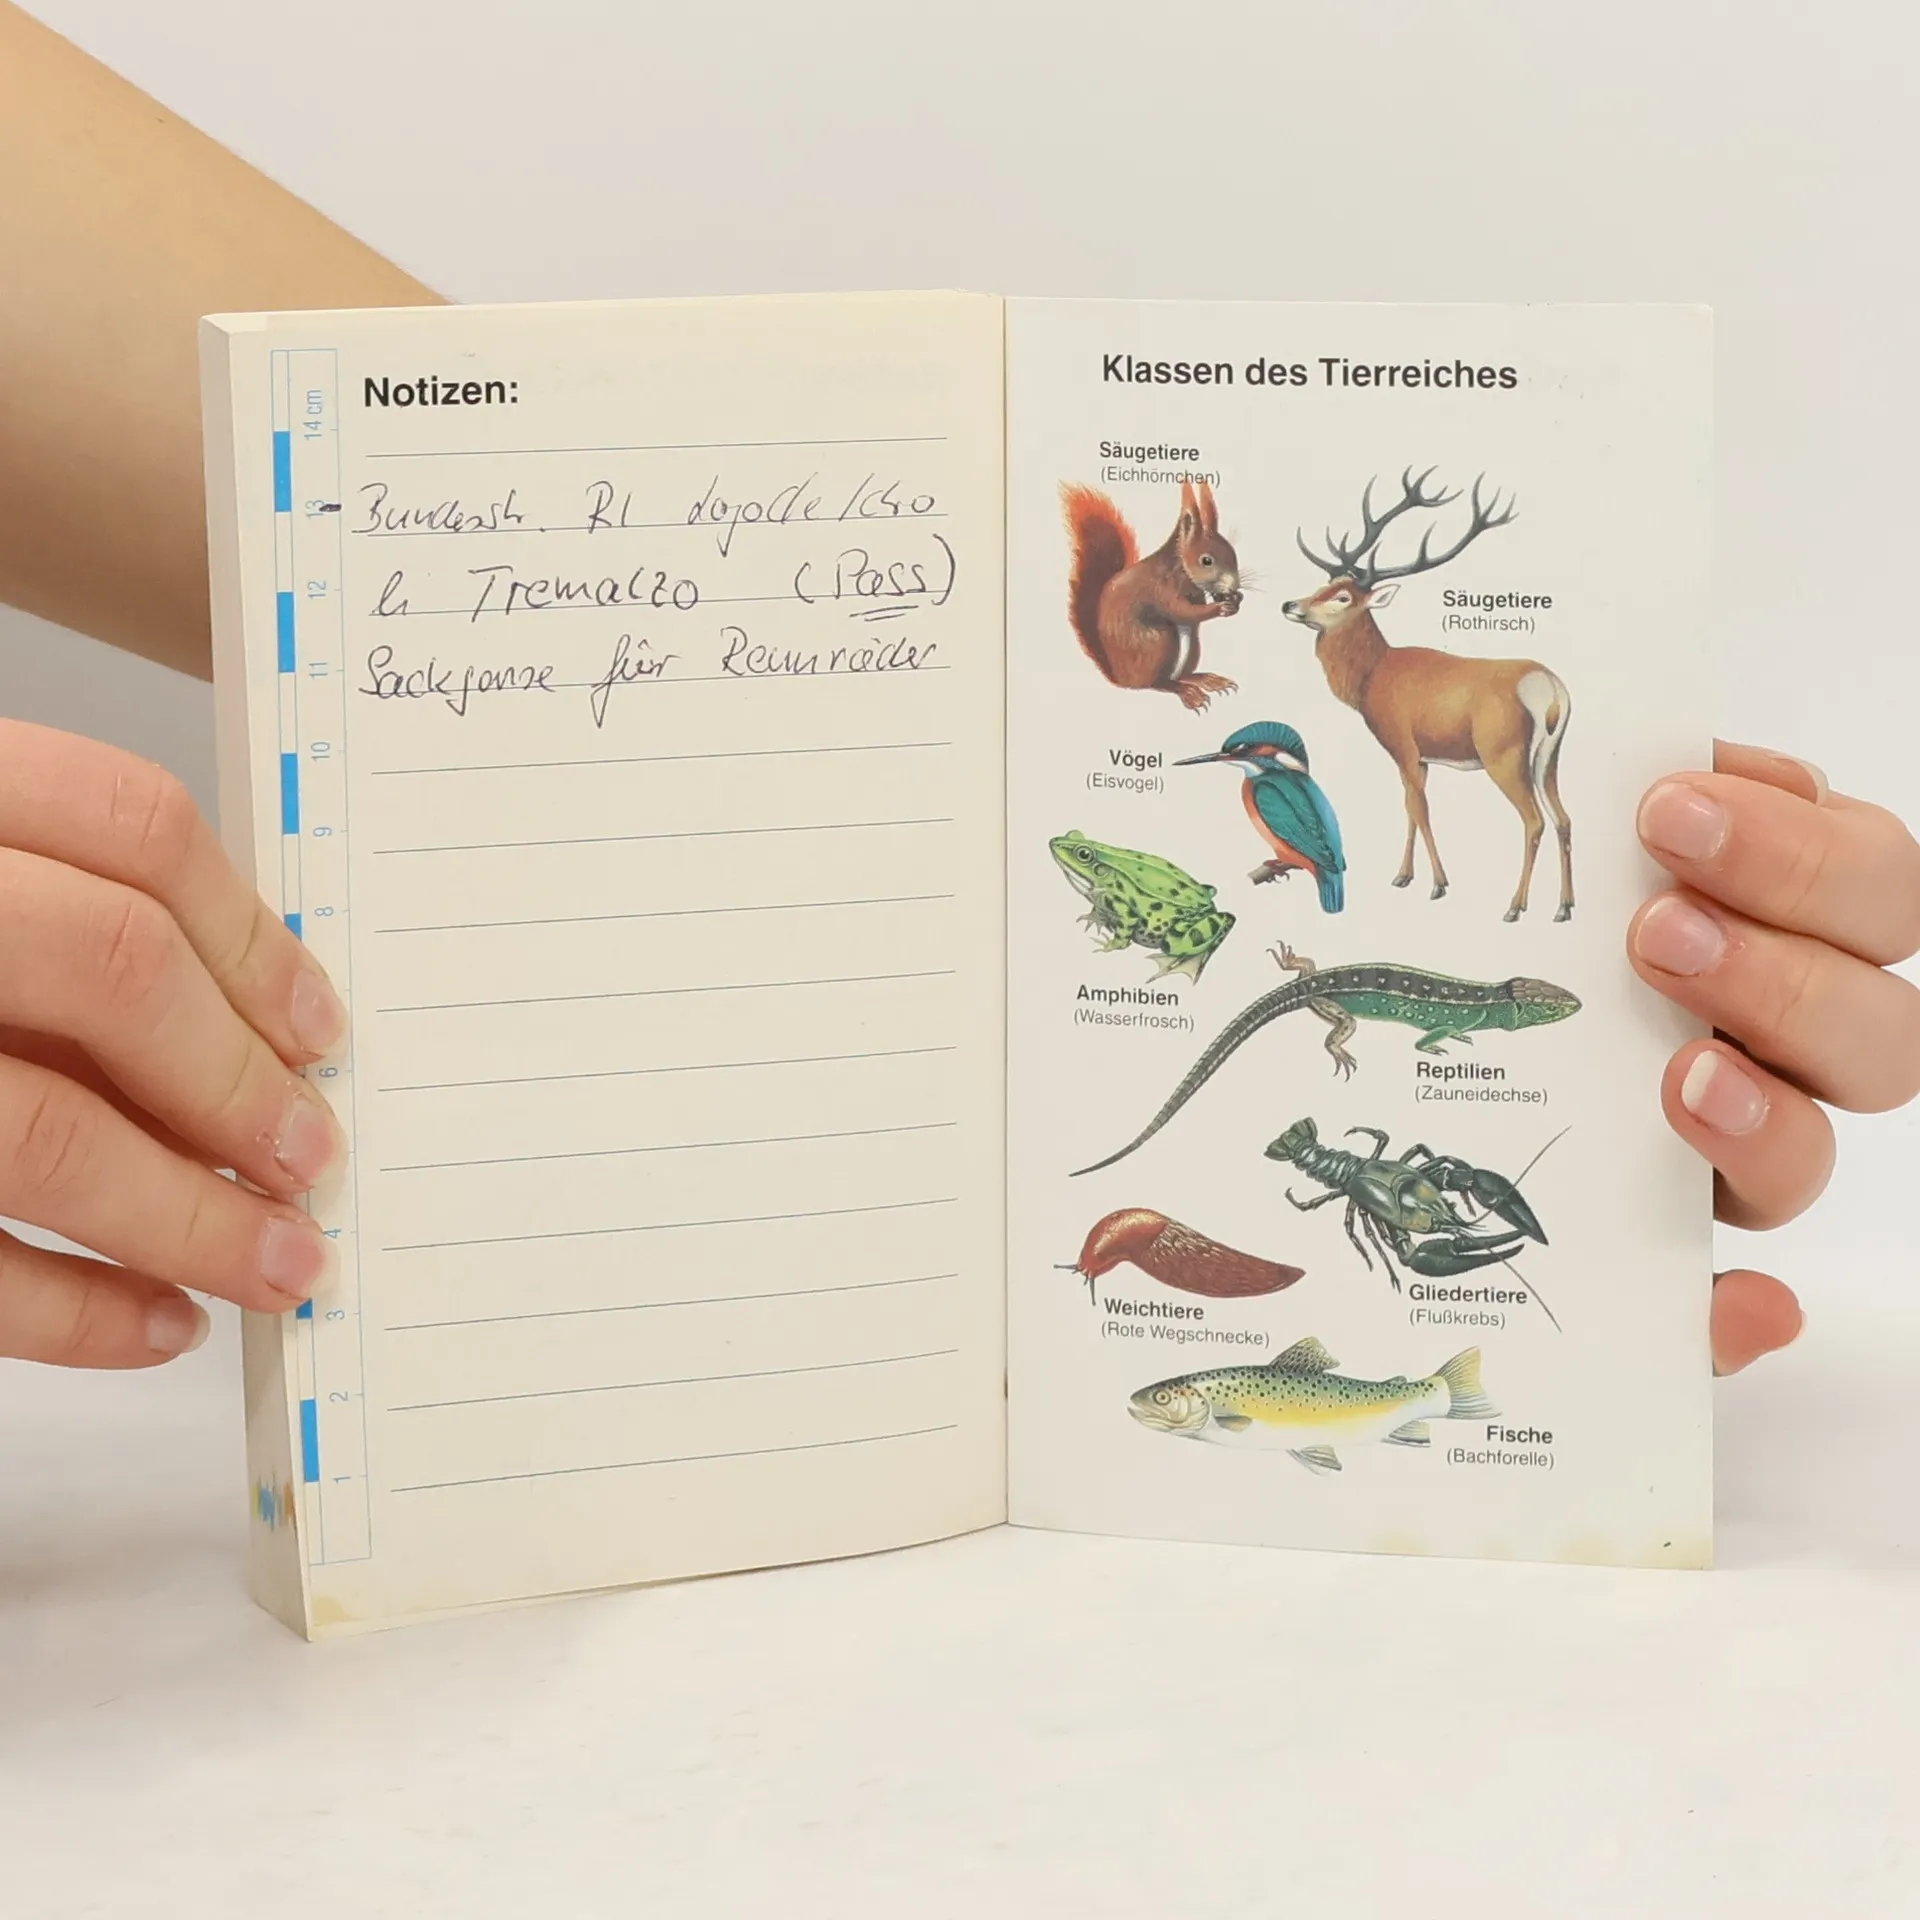 Notizen:
Bundesstr.
Tremalzo (Pass)
Sackgasse für Rennräder
14 cm
13
12
11
10
9
8
6
4
3
2
1
Klassen des Tierreiches
Säugetiere
(Eichhörnchen)
Säugetiere
(Rothirsch)
Vögel
(Eisvogel)
Amphibien
(Wasserfrosch)
Reptilien
(Zauneidechse)
Gliedertiere
(Flußkrebs)
Weichtiere
(Rote Wegschnecke)
Fische
(Bachforelle)